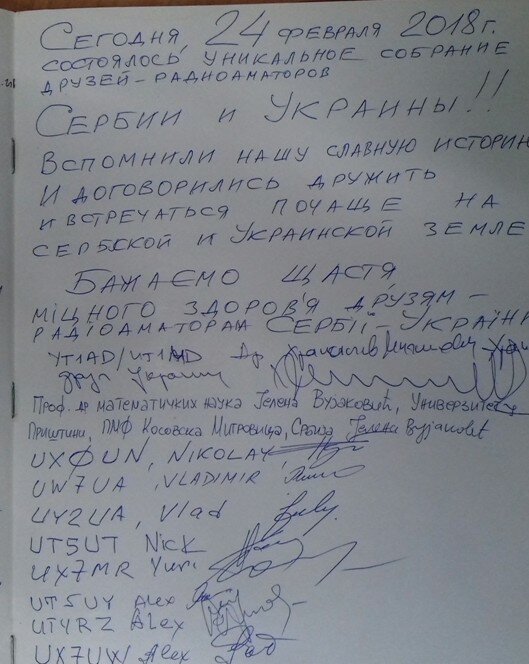 Сегодня, 24 февраля 2018г.
состоялось уникальное собрание
друзей-радиоаматоров
Сербии и Украины!!
Вспомнили нашу славную историю
и договорились дружить
и встречаться почаще на
сербской и украинской земле
Бажаємо щастя,
міцного здоров'я друзям -
радіоаматорам Сербії - України
YT1AD/UT1AAD Др
друг Украины
Проф. др математичких наука Јелена Вујаковић, Универзитет у
Приштини, ПМФ Косовска Митровица, Србија Јелена Вујаковић
UXØUN, NIKOLAY
UW7UA, VLADIMIR
UY2UA, Vlad
UT5UT Nick
UX7MR Yuri
UT5UY Alex
UT4RZ Alex
UX7UW Alex